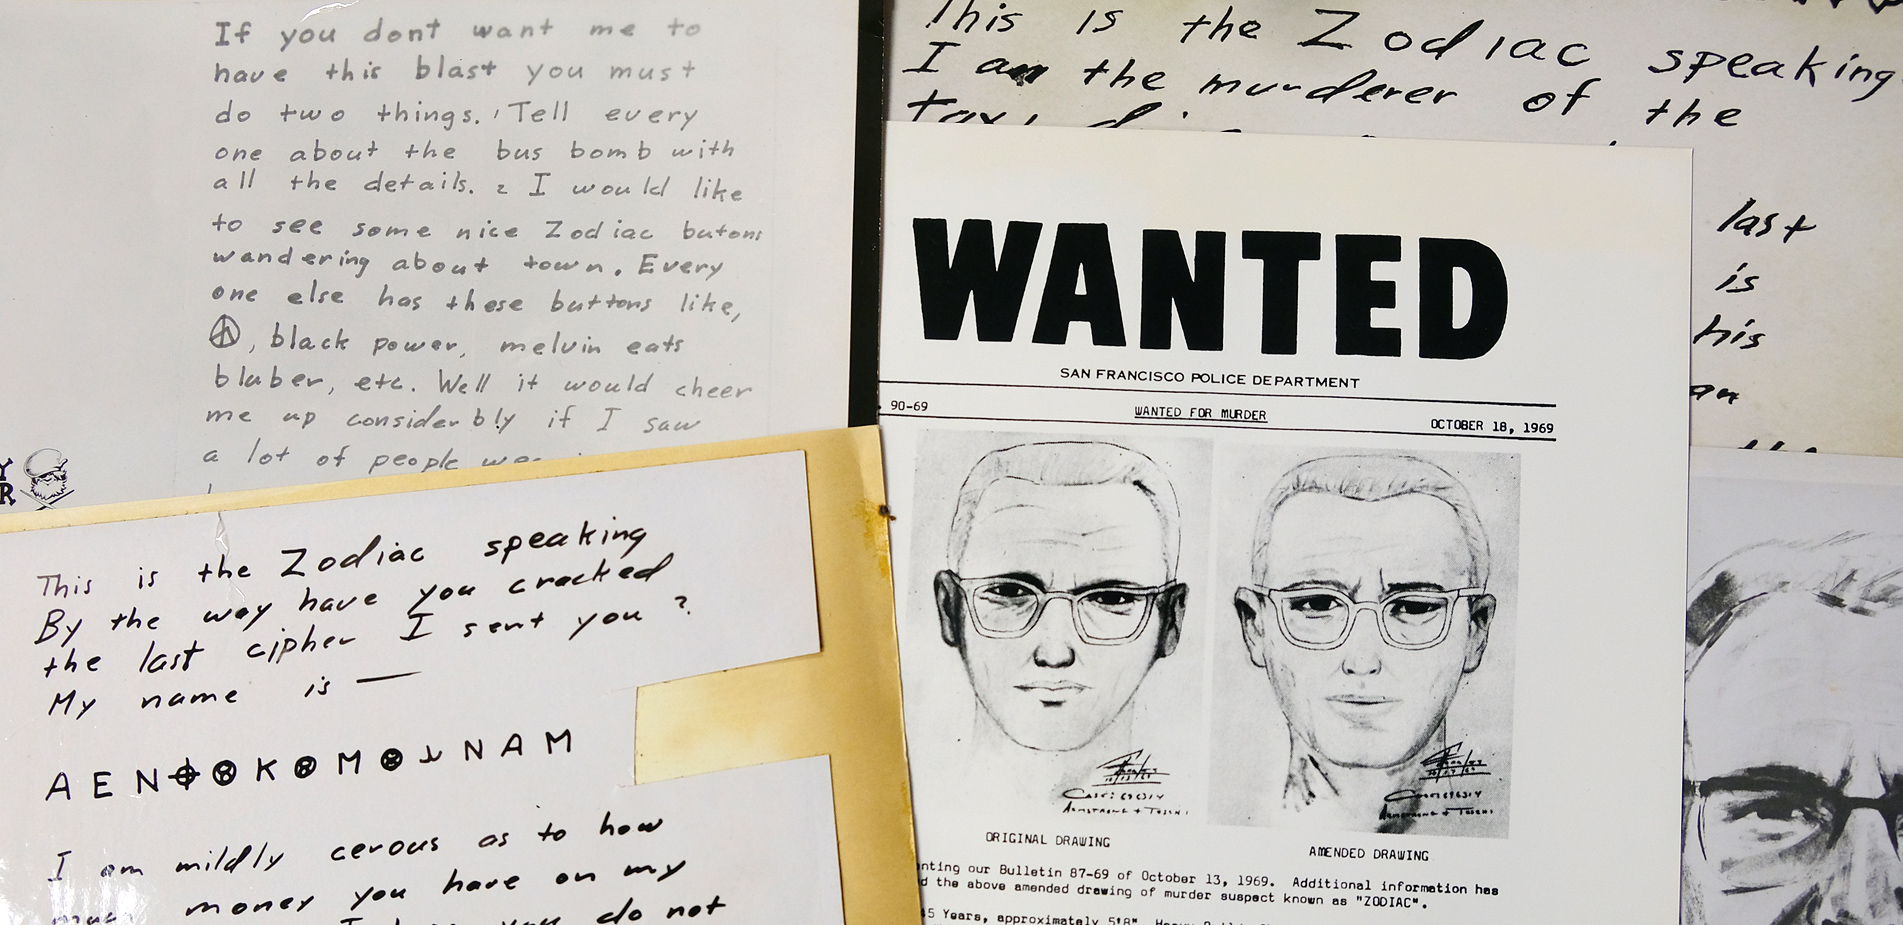 If you dont want me to
have this blast you must
do two things. 1 Tell every
one about the bus bomb with
all the details. 2 I would like
to see some nice Zodiac butons
wandering about town. Every
one else has these buttons like,
, black power, melvin eats
bluber, etc. Well it would cheer
me up considerbly if I saw
a lot of people
Y
R
This is the Zodiac speaking
By the way have you cracked
the last cipher I sent you ?
My name is —
A E N ⌖ K M N A M
I am mildly cerous as to how
much money you have on my
do not
This is the Zodiac speaking
I am the murderer of the
last
is
his
an
WANTED
SAN FRANCISCO POLICE DEPARTMENT
90-69 WANTED FOR MURDER OCTOBER 18, 1969
ORIGINAL DRAWING AMENDED DRAWING
nting our Bulletin 87-69 of October 13, 1969. Additional information has
d the above amended drawing of murder suspect known as "ZODIAC".
5 Years, approximately 5'8".